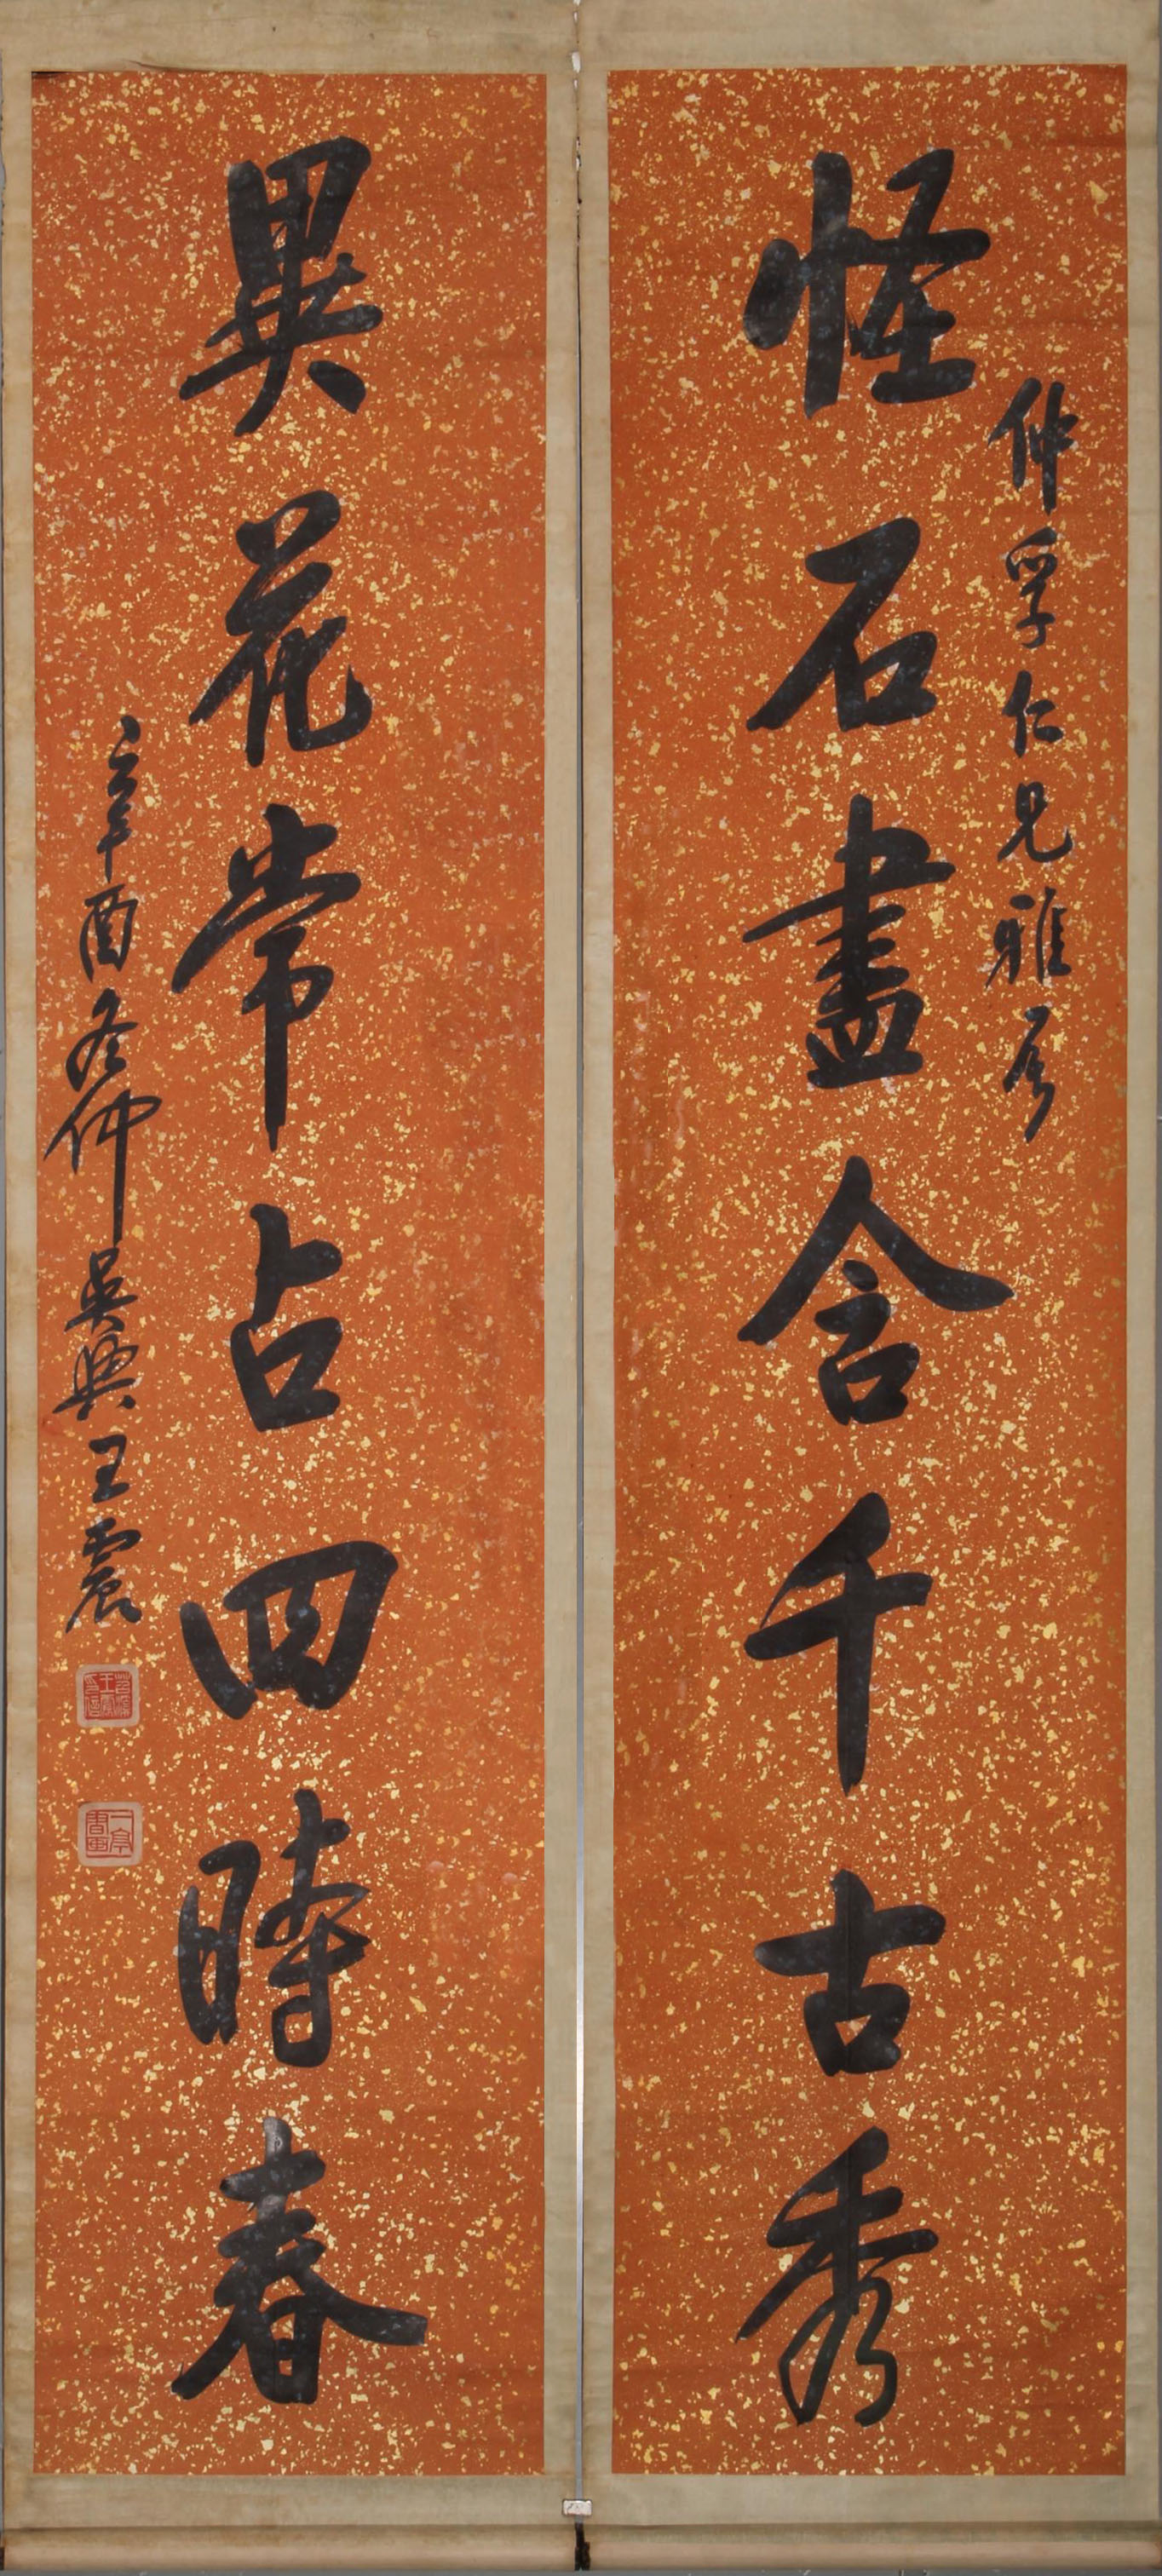 仲孚仁兄雅屬
怪石盡含千古秀
異花常占四時春
辛酉冬仲吳興王震
一亭書畫